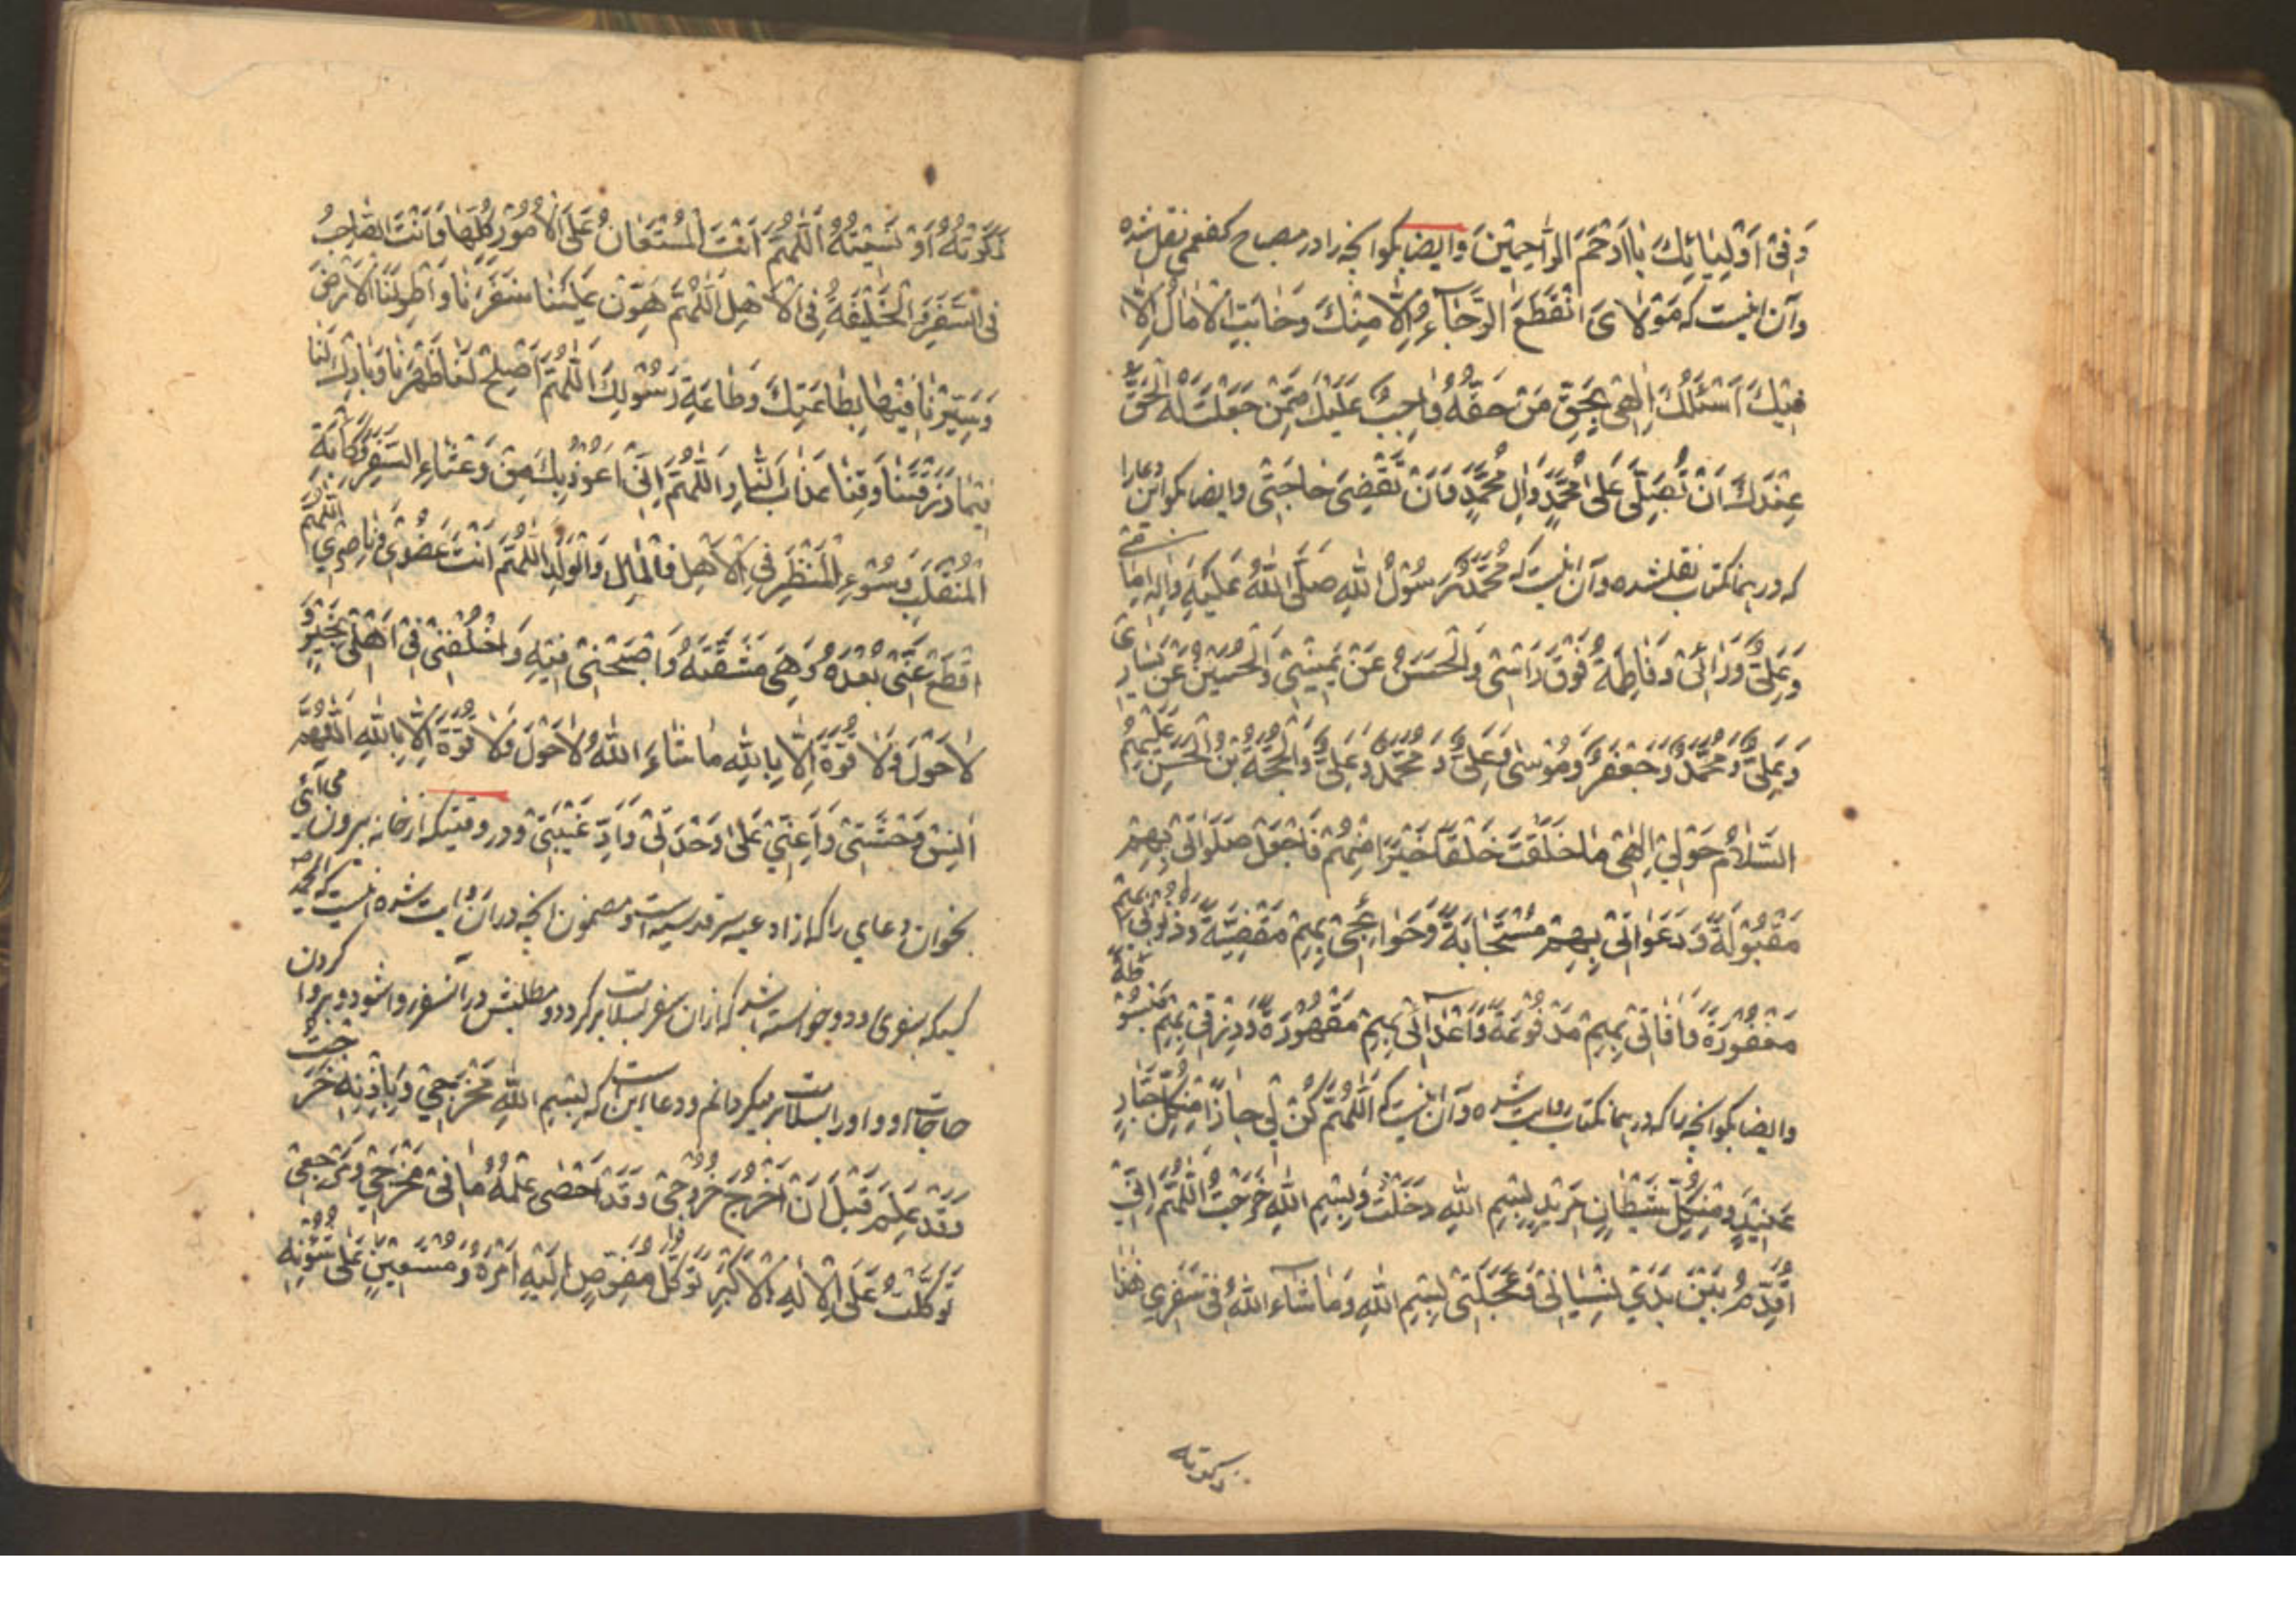 وَفِیْ اَوْلِیٰائِکَ یٰا اَرْحَمَ الرّٰاحِمِیْنَ وایضا بکو انچه را در مصباح کفعمی نقل شده
وآن اینست که مَوْلٰایَ انْقَطَعَ الرَّجٰاۤءُ اِلّٰا مِنْکَ وَخٰابَتِ الْاٰمٰالُ اِلّٰا
فِیْکَ اَسْئَلُکَ اِلٰهِیْ بِحَقِّ مَنْ حَقُّهُ وٰاجِبٌ عَلَیْکَ مِمَّنْ جَعَلْتَ لَهُ الْحَقَّ
عِنْدَکَ اَنْ تُصَلِّیَ عَلٰی مُحَمَّدٍ وَاٰلِ مُحَمَّدٍ وَاَنْ تَقْضِیَ حٰاجَتِیْ وایضا بکو این دعا را
که در همانکتاب نقلشده وآن اینست که مُحَمَّدٌ رَسُوْلُ اللّٰهِ صَلَّی اللّٰهُ عَلَیْهِ وَاٰلِهِ اَمٰامِیْ
وَعَلِیٌّ وَرٰائِیْ وَفٰاطِمَةُ فَوْقَ رَاْسِیْ وَالْحَسَنُ عَنْ یَمِیْنِیْ وَالْحُسَیْنُ عَنْ یَسٰارِیْ
وَعَلِیٌّ وَمُحَمَّدٌ وَجَعْفَرٌ وَمُوْسٰی وَعَلِیٌّ وَمُحَمَّدٌ وَعَلِیٌّ وَالْحُجَّةُ بْنُ الْحَسَنِ عَلَیْهِمُ
السَّلٰامُ حَوْلِیْ اِلٰهِیْ مٰا خَلَقْتَ خَلْقًا خَیْرًا مِنْهُمْ فَاجْعَلْ صَلَوٰاتِیْ بِهِمْ
مَقْبُوْلَةً وَدَعَوٰاتِیْ بِهِمْ مُسْتَجٰابَةً وَحَوٰائِجِیْ بِهِمْ مَقْضِیَّةً وَذُنُوْبِیْ بِهِمْ
مَغْفُوْرَةً وَاٰفٰاتِیْ بِهِمْ مَدْفُوْعَةً وَاَعْدٰائِیْ بِهِمْ مَقْهُوْرَةً وَرِزْقِیْ بِهِمْ مَبْسُوْطَةً
وایضا بکو انچه را که در همانکتاب روایت شده وآن اینست که اَللّٰهُمَّ کُنْ لِیْ جٰارًا مِنْ کُلِّ جَبّٰارٍ
عَنِیْدٍ وَمِنْ کُلِّ شَیْطٰانٍ مَرِیْدٍ بِسْمِ اللّٰهِ دَخَلْتُ وَبِسْمِ اللّٰهِ خَرَجْتُ اَللّٰهُمَّ اِنِّیْ
اُقَدِّمُ بَیْنَ یَدَیْ نِسْیٰانِیْ وَعَجَلَتِیْ بِسْمِ اللّٰهِ وَمٰا شٰاۤءَ اللّٰهُ فِیْ سَفَرِیْ هٰذٰا
ذکرته
ذَکَرْتُهُ اَوْ نَسِیْتُهُ اَللّٰهُمَّ اَنْتَ الْمُسْتَعٰانُ عَلَی الْاُمُوْرِ کُلِّهٰا وَاَنْتَ الصّٰاحِبُ
فِی السَّفَرِ وَالْخَلِیْفَةُ فِی الْاَهْلِ اَللّٰهُمَّ هَوِّنْ عَلَیْنٰا سَفَرَنٰا وَاَطْوِ لَنَا الْاَرْضَ
وَسَیِّرْنٰا فِیْهٰا بِطٰاعَتِکَ وَطٰاعَةِ رَسُوْلِکَ اَللّٰهُمَّ اَصْلِحْ لَنٰا ظَهْرَنٰا وَبٰارِکْ لَنٰا
فِیْمٰا رَزَقْتَنٰا وَقِنٰا عَذٰابَ النّٰارِ اَللّٰهُمَّ اِنِّیْ اَعُوْذُ بِکَ مِنْ وَعْثٰاءِ السَّفَرِ وَکَاٰبَةِ
الْمُنْقَلَبِ وَسُوْءِ الْمَنْظَرِ فِی الْاَهْلِ وَالْمٰالِ وَالْوَلَدِ اَللّٰهُمَّ اَنْتَ عَضُدِیْ وَنٰاصِرِیْ اَللّٰهُمَّ
اقْطَعْ عَنِّیْ بُعْدَهُ وَهِیَ مَشَقَّتَهُ وَاصْحَبْنِیْ فِیْهِ وَاخْلُفْنِیْ فِیْ اَهْلِیْ بِخَیْرٍ وَ
لٰا حَوْلَ وَلٰا قُوَّةَ اِلّٰا بِاللّٰهِ مٰا شٰاءَ اللّٰهُ لٰا حَوْلَ وَلٰا قُوَّةَ اِلّٰا بِاللّٰهِ اَللّٰهُمَّ
اٰنِسْ وَحْشَتِیْ وَاَعِنِّیْ عَلٰی وَحْدَتِیْ وَاَدِّ غَیْبَتِیْ ودر وقتیکه از خانه بیرون می آئی
بخوان دعای را که از ادعیه سر قدسیه است ومضمون انچه در آن روایت شده اینست که
کسیکه بسفری رود وخواسته باشد که ازان سفر بسلامت برکردد ومطلبش در آنسفر روا شود وبروا کردن
حاجات او واورا بسلامت برمیکردانم ودعا این است که بِسْمِ اللّٰهِ مَخْرَجِیْ وَبِاِذْنِهِ خَرَجْتُ
وَقَدْ عَلِمَ قَبْلَ اَنْ اَخْرُجَ خُرُوْجِیْ وَقَدْ اَحْصٰی عِلْمُهُ مٰا فِیْ مَخْرَجِیْ وَمَرْجَعِیْ
تَوَکَّلْتُ عَلَی الْاِلٰهِ الْاَکْبَرِ تَوَکُّلَ مُفَوِّضٍ اِلَیْهِ اَمْرَهُ وَمُسْتَعِیْنٍ عَلٰی شُئُوْنِهِ